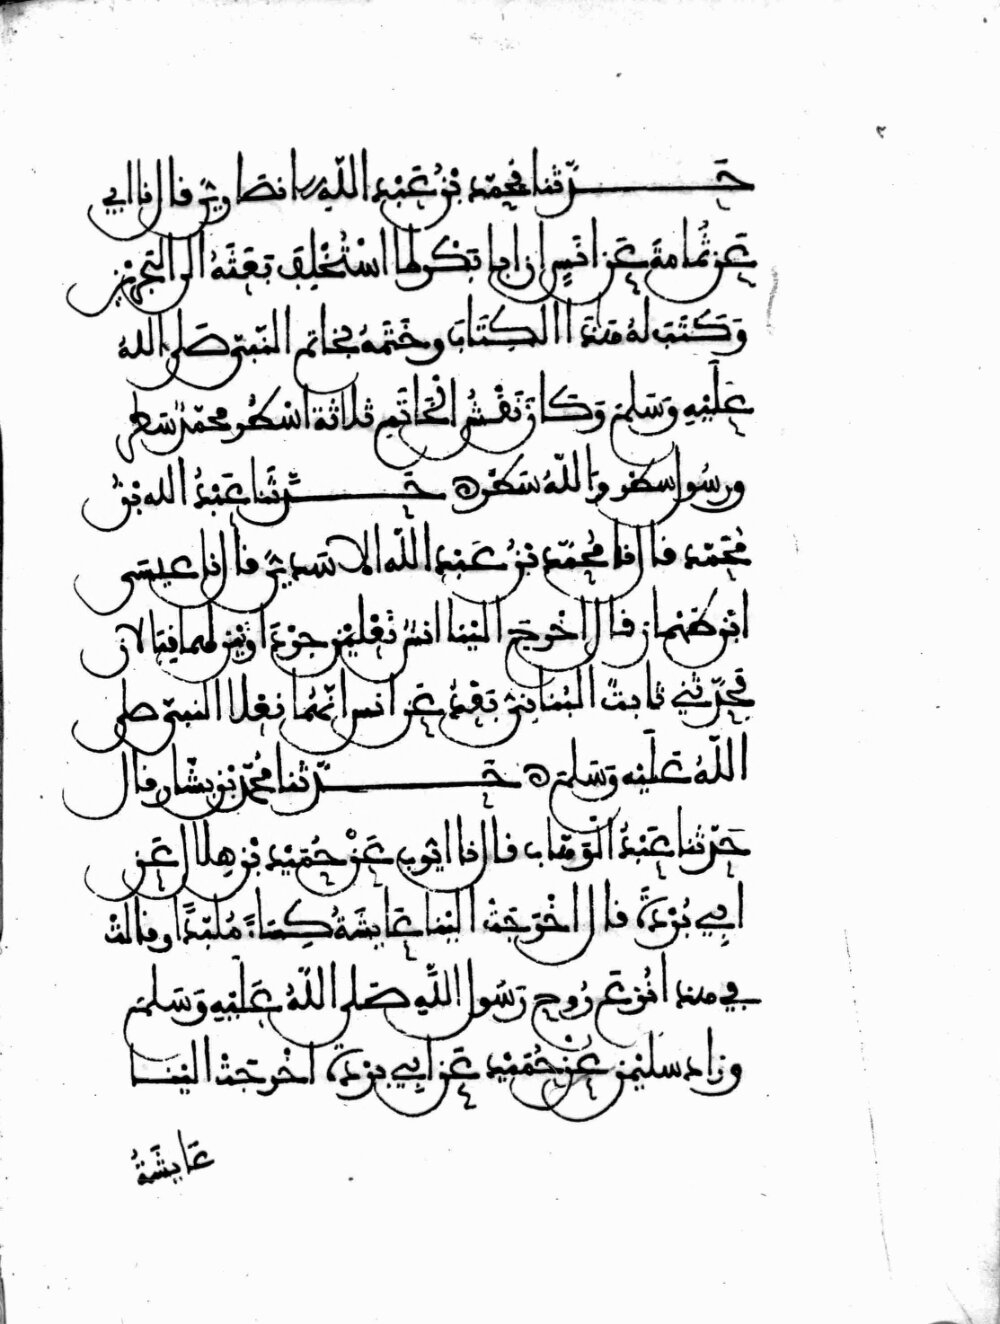 ٢
حَدَّثنا محمّد بْنُ عَبْدِ اللّهِ الانصاريّ قال نا ابي
عَن ثُمامةَ عَن انَسٍ ان ابا بَكْرٍ لما اسْتُخْلِفَ بَعَثَهُ الى البَحْرَيْنِ
وَكَتَبَ لهُ هذا الكِتَابَ وخَتَمهُ بخاتم النّبيّ صَلى اللهُ
عَلَيْهِ وَسَلم وَكان نَقْشُ الخَاتَمِ ثلاثةَ اسْطُرٍ محمّدٌ سَطر
ورسُول سطر وَاللّهُ سَطْر حَدَّثَنا عَبْدُ الله بْنُ
مُحَمّد قال نا مُحمّد بْنُ عَبْدِ اللّه الاسَديّ قال نا عيسَى
ابْن طَهْمان قال اخْرجَ اليْنا انسٌ نَعْلَيْنِ جرْدَاوَيْنِ لهما قِبالان
فحَدّثني ثابتٌ البُنانيّ بَعْدُ عَن انس انّهُما نعلا النبيّ صلى
اللّهُ عَلَيْه وَسَلم حَدّثنا مُحمّد بْن بشّار قال
حَدّثنا عَبْدُ الوَهّاب قال نا ايّوب عَنْ حُمَيْد بْن هِلال عَن
ابِي بُرْدَةَ قال اخْرَجَتْ اليْنا عَايشَةُ كِسَاءً مُلَبّدًا وقالتْ
في هذا نُزعَ رُوح رَسُول اللّهِ صَلى اللّهُ عَلَيْهِ وَسَلم
وزاد سليْمن عَنْ حُمَيْد عَن ابي بردَةَ اخْرجَتْ اليْنا
عَايشَةُ